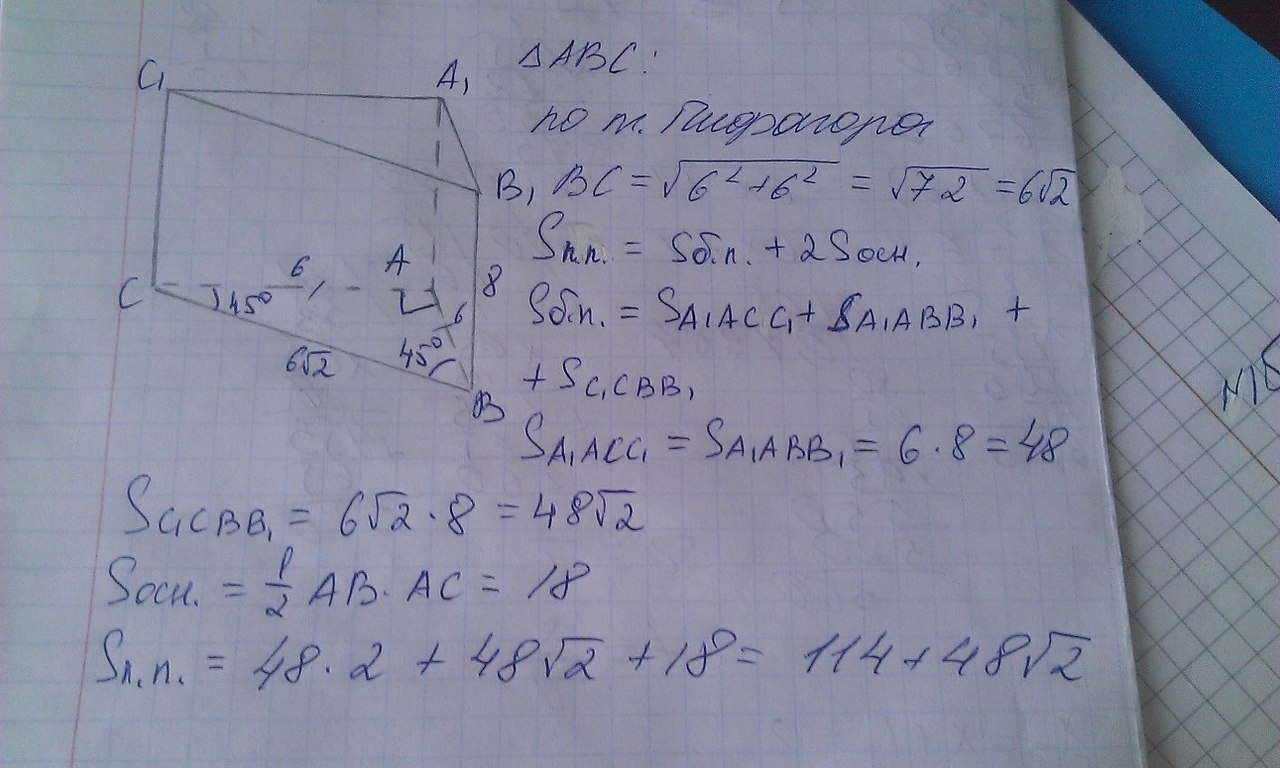 C₁
A₁
B₁
C
A
B
6
6
8
45°
45°
6√2
△ABC:
по т. Пифагора
BC = √6²+6² = √72 = 6√2
Sп.п. = Sб.п. + 2Sосн.
Sб.п. = SA₁ACC₁ + SA₁ABB₁ +
+ SC₁CBB₁
SA₁ACC₁ = SA₁ABB₁ = 6·8 = 48
SC₁CBB₁ = 6√2·8 = 48√2
Sосн. = 1/2 AB·AC = 18
Sп.п. = 48·2 + 48√2 + 18 = 114 + 48√2